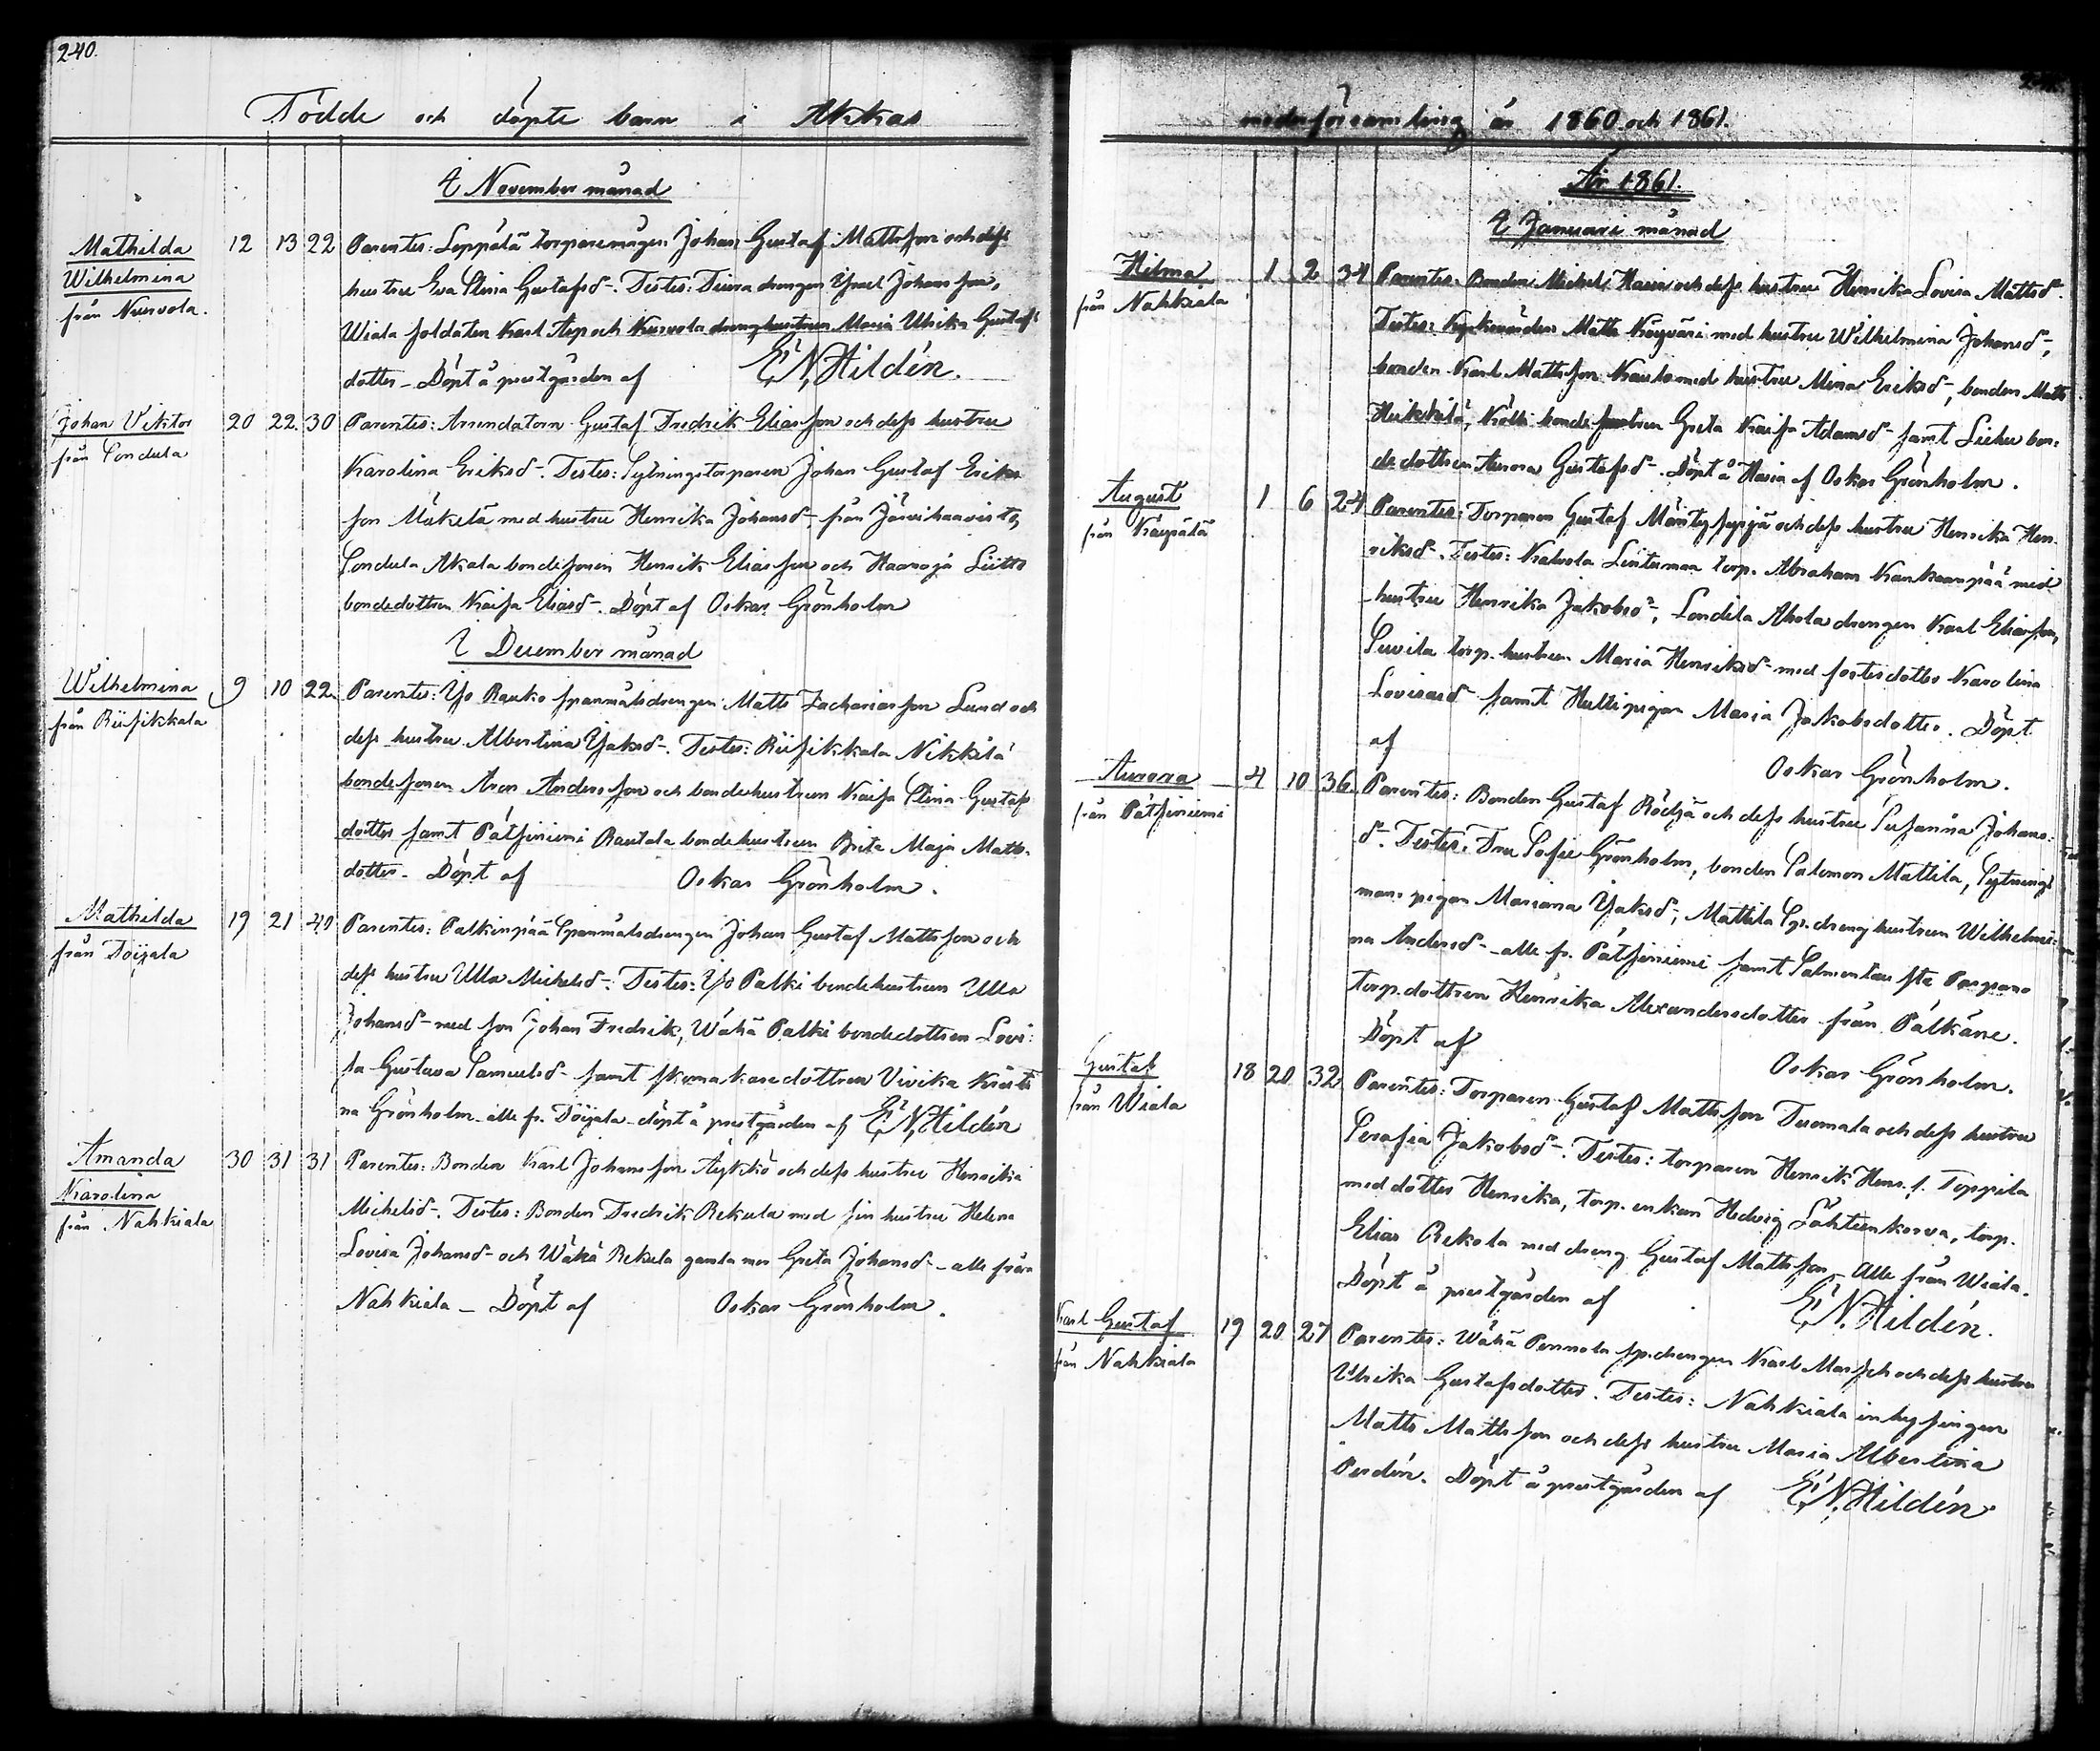 240.
Födde och döpte barn i Akkas
I November månad
Mathilda Wilhelmina från Kurvola. 12 13 22 Parentes: Leppälä torparemågen Johan Gustaf Mattsson och dess
hustru Eva Stina Gustafsd-. Testes: drengen Johansson,
Wiala soldaten Karl Asp och Kurvola drenghustrun Maria Ulrika Gustafs
dotter_ Döpt å prestgården af E. N. Hildén.
Johan Viktor från Sondula 20 22 30 Parentes: Arrendatorn Gustaf Fredrik Eliasson och dess hustru
Karolina Eriksd-. Testes: Sytningstorparen Johan Gustaf Eriks
son Mäkelä med hustru Henrika Johansd-, från Järvihaavisto,
Sondula Akala bondesonen Henrik Eliasson och Haaroja Liitto
bondedottren Kaisa Eliasd-. Döpt af Oskar Grönholm
I December månad
Wilhelmina från Riisikkala 9 10 22 Parentes: Yso Rauko spanmålsdrengen Matts Zachariasson Lund och
dess hustru Albertina Isaksd-. Testes: Riisikkala Nikkilä
bondesonen Aron Andersson och bondehustrun Kaisa Stina Gustafs
dotter samt Pätsiniemi Rautala bondehustrun Brita Maja Matts-
dotter_ Döpt af Oskar Grönholm.
Mathilda från Toijala 19 21 40 Parentes: Palkinpää Spanmålsdrengen Johan Gustaf Mattsson och
dess hustru Ulla Michelsd-. Testes: Yso Palki bondehustrun Ulla
Johansd- med son Johan Fredrik, Wähä Palki bondedottren Lovi-
sa Gustava Samuelsd- samt skomakaredottren Vivika Kristi
na Grönholm_ alle fr. Toijala_ döpt å prestgården af E. N. Hildén
Amanda Karolina från Nahkiala 30 31 31 Parentes: Bonden Karl Johansson Äykkö och dess hustru Henrika
Michelsd-. Testes: Bonden Fredrik Rekula med sin hustru Helena
Lovisa Johansd- och Wähä Rekula gamla mor Greta Johansd-_ alle från
Nahkiala_ Döpt af Oskar Grönholm.
moderförsamling år 1860 och 1861.
År 1861.
I Januari månad
Hilma från Nahkiala 1 2 34 Parentes: Bonden Michel och dess hustru Henrika Lovisa Mattsd-.
Testes: Kyrkovärden Matts med hustru Wilhelmina Johansd-,
bonden Karl Mattsson med hustru Mina Eriksd-, bonden Matts
Heikkilä, bondehustrun Greta Kaisa Adamsd- samt bon-
dedottren Aurora Gustafsd-. Döpt å Haria af Oskar Grönholm.
August från Käyrälä 1 6 24 Parentes: Torparen Gustaf Mäntysyrjä och dess hustru Henrika Hen-
riksd-. Testes: Kalvola torp. Abraham Kankaanpää med
hustru Henrika Jakobsd-, Sondila Ahola drengen Karl Eliasson,
torp. hustrun Maria Henriksd- med fosterdotter Karolina
Lovisasd- samt pigan Maria Jakobsdotter. Döpt
af Oskar Grönholm.
Aurora från Pätsiniemi 4 10 36 Parentes: Bonden Gustaf Rödjä och dess hustru Susanna Johans-
d-. Testes: Fru Sofie Grönholm, bonden Salomon Mattila, Sytnings
mans pigan Mariana Isaksd-, Mattila Sp. drenghustrun Wilhelmi-
na Andersd-_ alle fr. Pätsiniemi samt
torp. dottren Henrika Alexandersdotter från Pälkäne.
Döpt af Oskar Grönholm.
Gustaf från Wiala 18 20 32 Parentes: Torparen Gustaf Mattsson Tuomala och dess hustru
Serafia Jakobsd-. Testes: torparen Henrik Henr. s. Toppila
med dotter Henrika, torp. enkan Hedvig Lähteenkorva, torp.
Elias Rekola med dreng Gustaf Mattsson_ Alle från Wiala.
Döpt å prestgården af E. N. Hildén.
Karl Gustaf från Nahkiala 19 20 27 Parentes: Wähä Pennola sp. drengen Karl och dess hustru
Ulrika Gustafsdotter. Testes: Nahkiala inhysingen
Matts Mattsson och dess hustru Maria Albertina
Perdén. Döpt å prestgården af E. N. Hildén